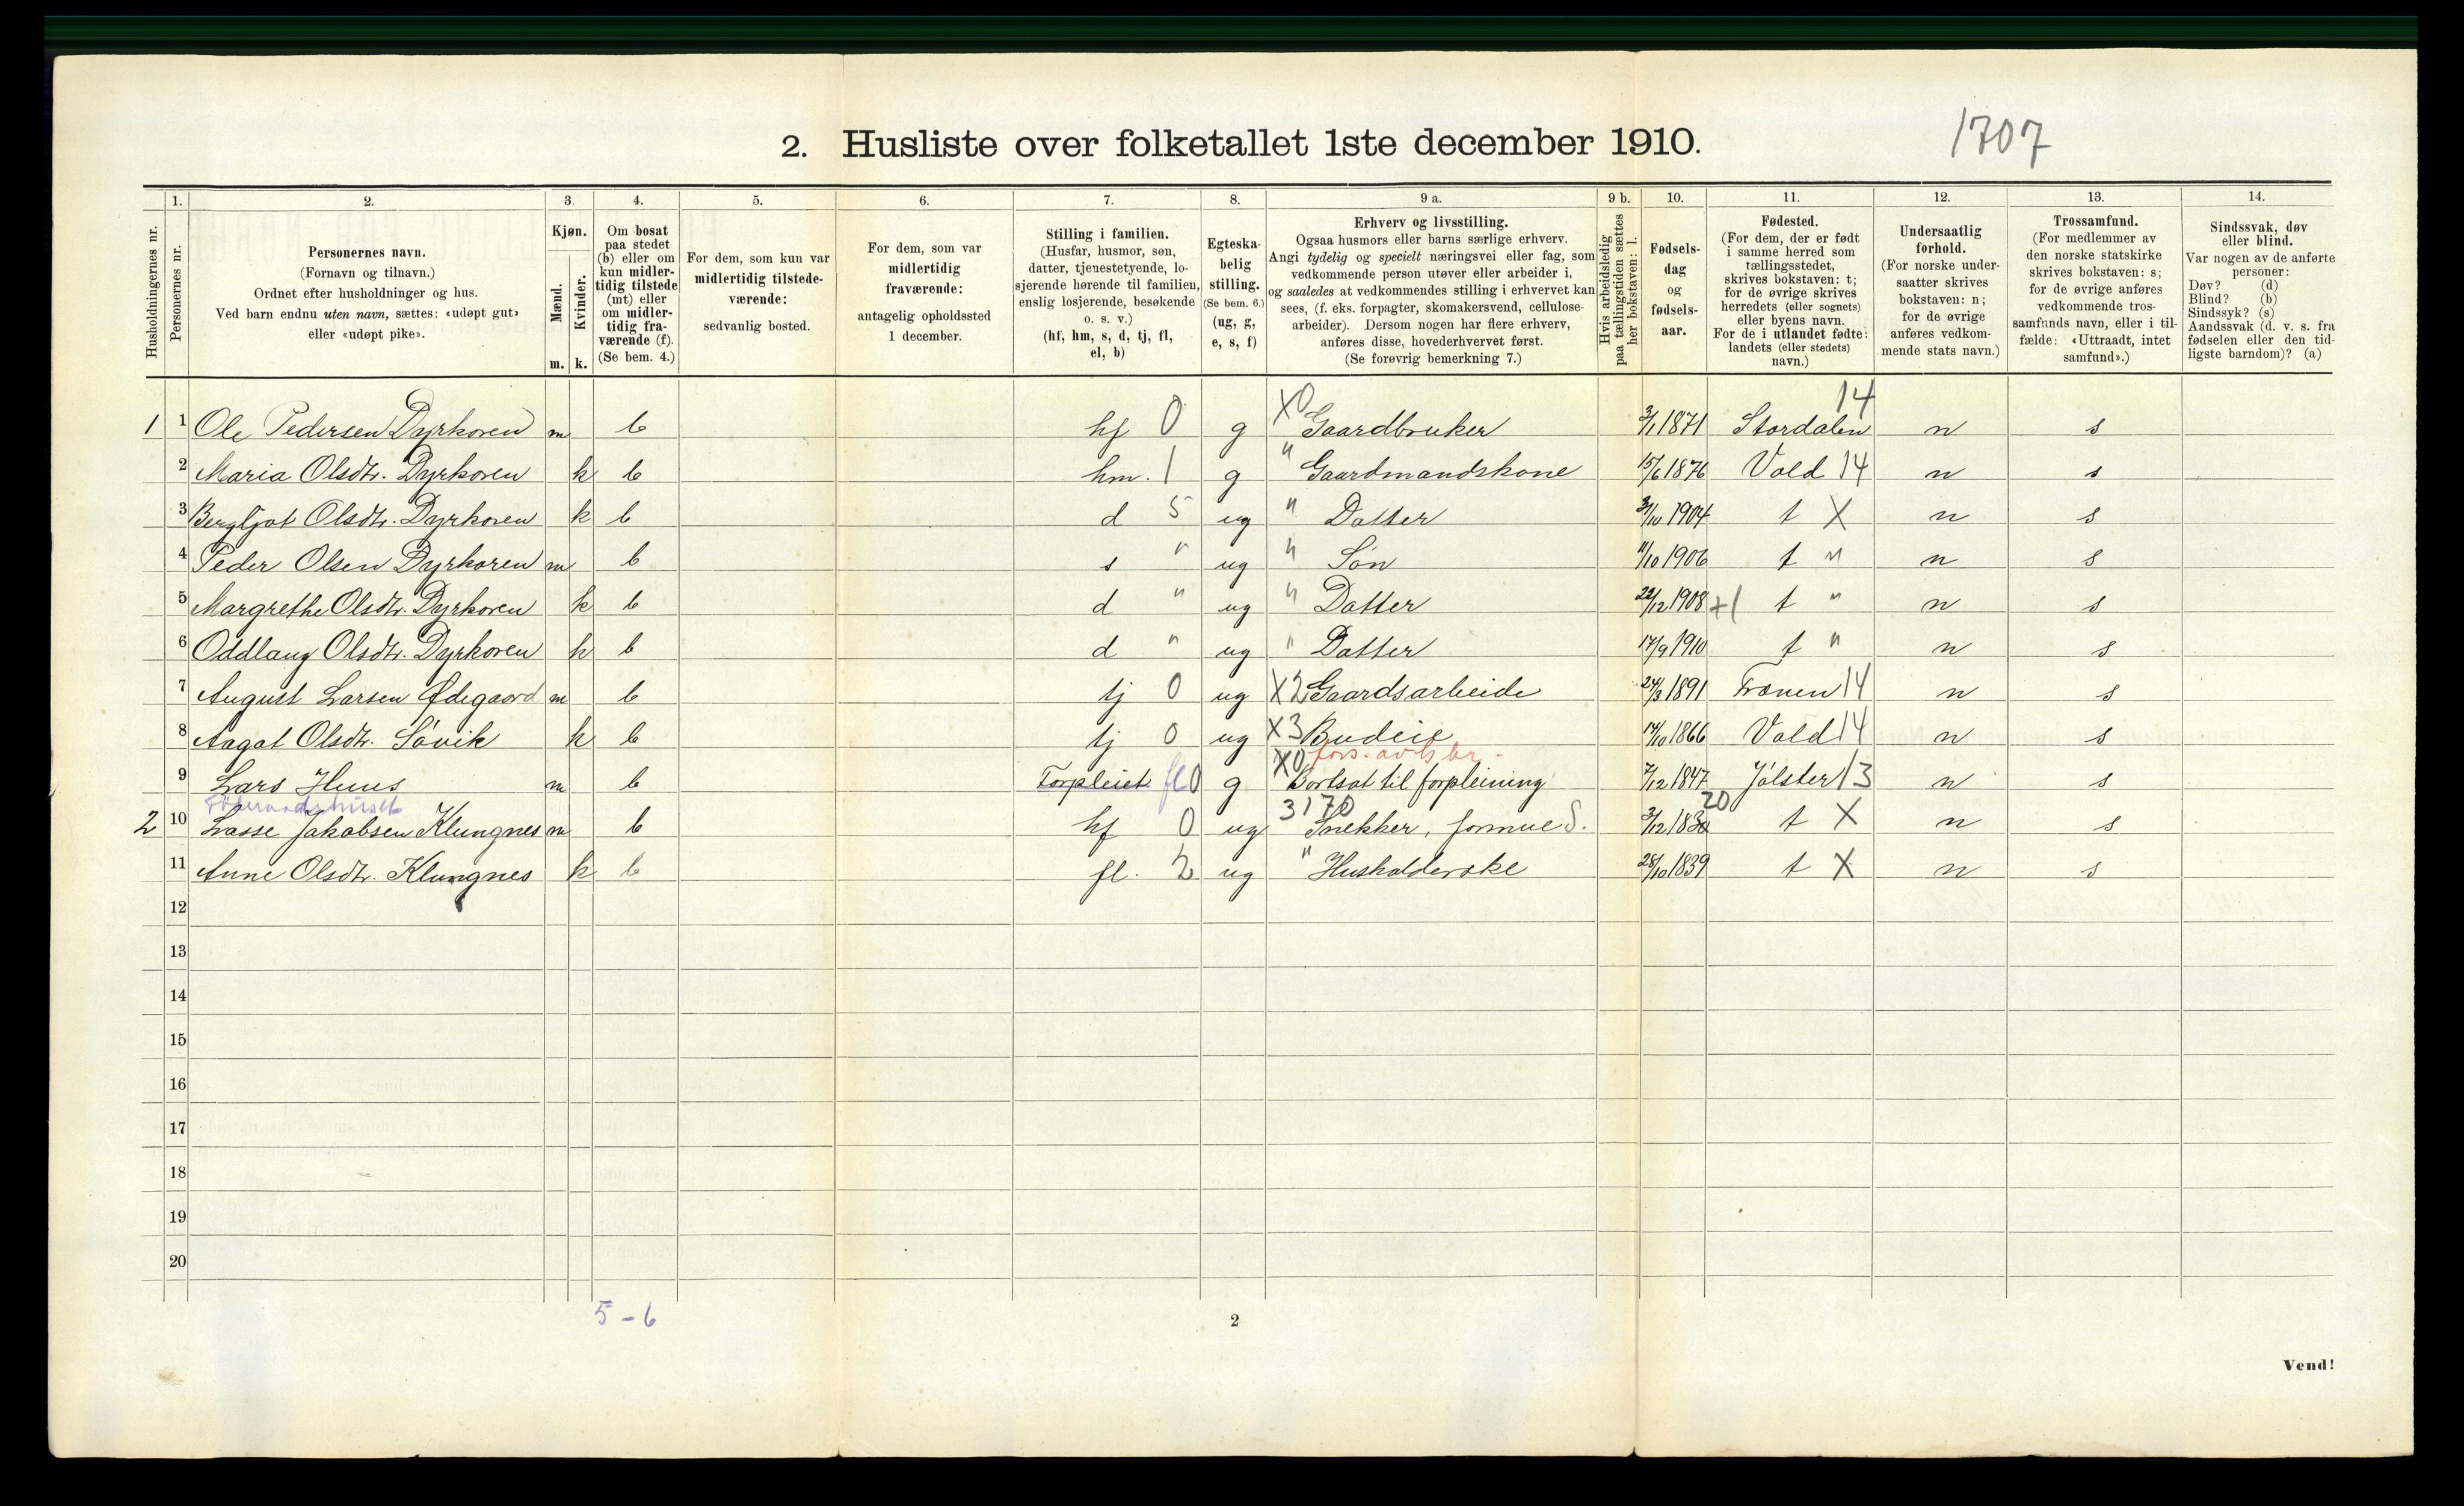 2. Husliste over folketallet 1ste december 1910.
1707
1. 2. 3. 4. 5. 6. 7. 8. 9 a. 9 b. 10. 11. 12. 13. 14.
Husholdningernes nr.
Personernes nr.
Personernes navn.
(Fornavn og tilnavn.)
Ordnet efter husholdninger og hus.
Ved barn endnu uten navn, sættes: «udøpt gut»
eller «udøpt pike».
Kjøn.
Mænd.
Kvinder.
m. k.
Om bosat
paa stedet
(b) eller om
kun midler-
tidig tilstede
(mt) eller
om midler-
tidig fra-
værende (f).
(Se bem. 4.)
For dem, som kun var
midlertidig tilstede-
værende:
sedvanlig bosted.
For dem, som var
midlertidig
fraværende:
antagelig opholdssted
1 december.
Stilling i familien.
(Husfar, husmor, søn,
datter, tjenestetyende, lo-
sjerende hørende til familien,
enslig losjerende, besøkende
o. s. v.)
(hf, hm, s, d, tj, fl,
el, b)
Egteska-
belig
stilling.
(Se bem. 6.)
(ug, g,
e, s, f)
Erhverv og livsstilling.
Ogsaa husmors eller barns særlige erhverv.
Angi tydelig og specielt næringsvei eller fag, som
vedkommende person utøver eller arbeider i,
og saaledes at vedkommendes stilling i erhvervet kan
sees, (f. eks. forpagter, skomakersvend, cellulose-
arbeider). Dersom nogen har flere erhverv,
anføres disse, hovederhvervet først.
(Se forøvrig bemerkning 7.)
Hvis arbeidsledig
paa tællingstiden sættes
her bokstaven: l.
Fødsels-
dag
og
fødsels-
aar.
Fødested.
(For dem, der er født
i samme herred som
tællingsstedet,
skrives bokstaven: t;
for de øvrige skrives
herredets (eller sognets)
eller byens navn.
For de i utlandet fødte:
landets (eller stedets)
navn.)
Undersaatlig
forhold.
(For norske under-
saatter skrives
bokstaven: n;
for de øvrige
anføres vedkom-
mende stats navn.)
Trossamfund.
(For medlemmer av
den norske statskirke
skrives bokstaven: s;
for de øvrige anføres
vedkommende tros-
samfunds navn, eller i til-
fælde: «Uttraadt, intet
samfund».)
Sindssvak, døv
eller blind.
Var nogen av de anførte
personer:
Døv? (d)
Blind? (b)
Sindssyk? (s)
Aandssvak (d. v. s. fra
fødselen eller den tid-
ligste barndom)? (a)
1 1 Ole Pedersen Dyrkoren m b hf 0 g X0 Gaardbruker 3/1 1871 Stordalen 14 n s
2 Maria Olsdtr. Dyrkoren k b hm. 1 g " Gaardmandskone 15/6 1876 Vold 14 n s
3 Bergljot Olsdtr. Dyrkoren k b d 5 ug " Datter 31/10 1904 t X n s
4 Peder Olsen Dyrkoren m b s " ug " Søn 11/10 1906 t " n s
5 Margrethe Olsdtr. Dyrkoren k b d " ug " Datter 22/12 1908 +1 t " n s
6 Oddlaug Olsdtr. Dyrkoren k b d " ug " Datter 17/9 1910 t " n s
7 August Larsen Ødegaard m b tj 0 ug X2 Gaardsarbeide 24/3 1891 Frænen 14 n s
8 Aagot Olsdtr. Søvik k b tj 0 ug X3 Budeie 14/10 1866 Vold 14 n s
9 Lars Huus m b Forpleiet fl 0 g X0 Bortsat til forpleining 7/12 1847 Jølster 13 n s
Føderaadshuset
2 10 Lasse Jakobsen Klungnes m b hf 0 ug 3170 Snekker, formue S. 3/12 1830 20 t X n s
11 Anne Olsdtr. Klungnes k b fl. 2 ug " Husholderske 28/10 1839 t X n s
12
13
14
15
16
17
18
19
20
5-6
2
Vend!